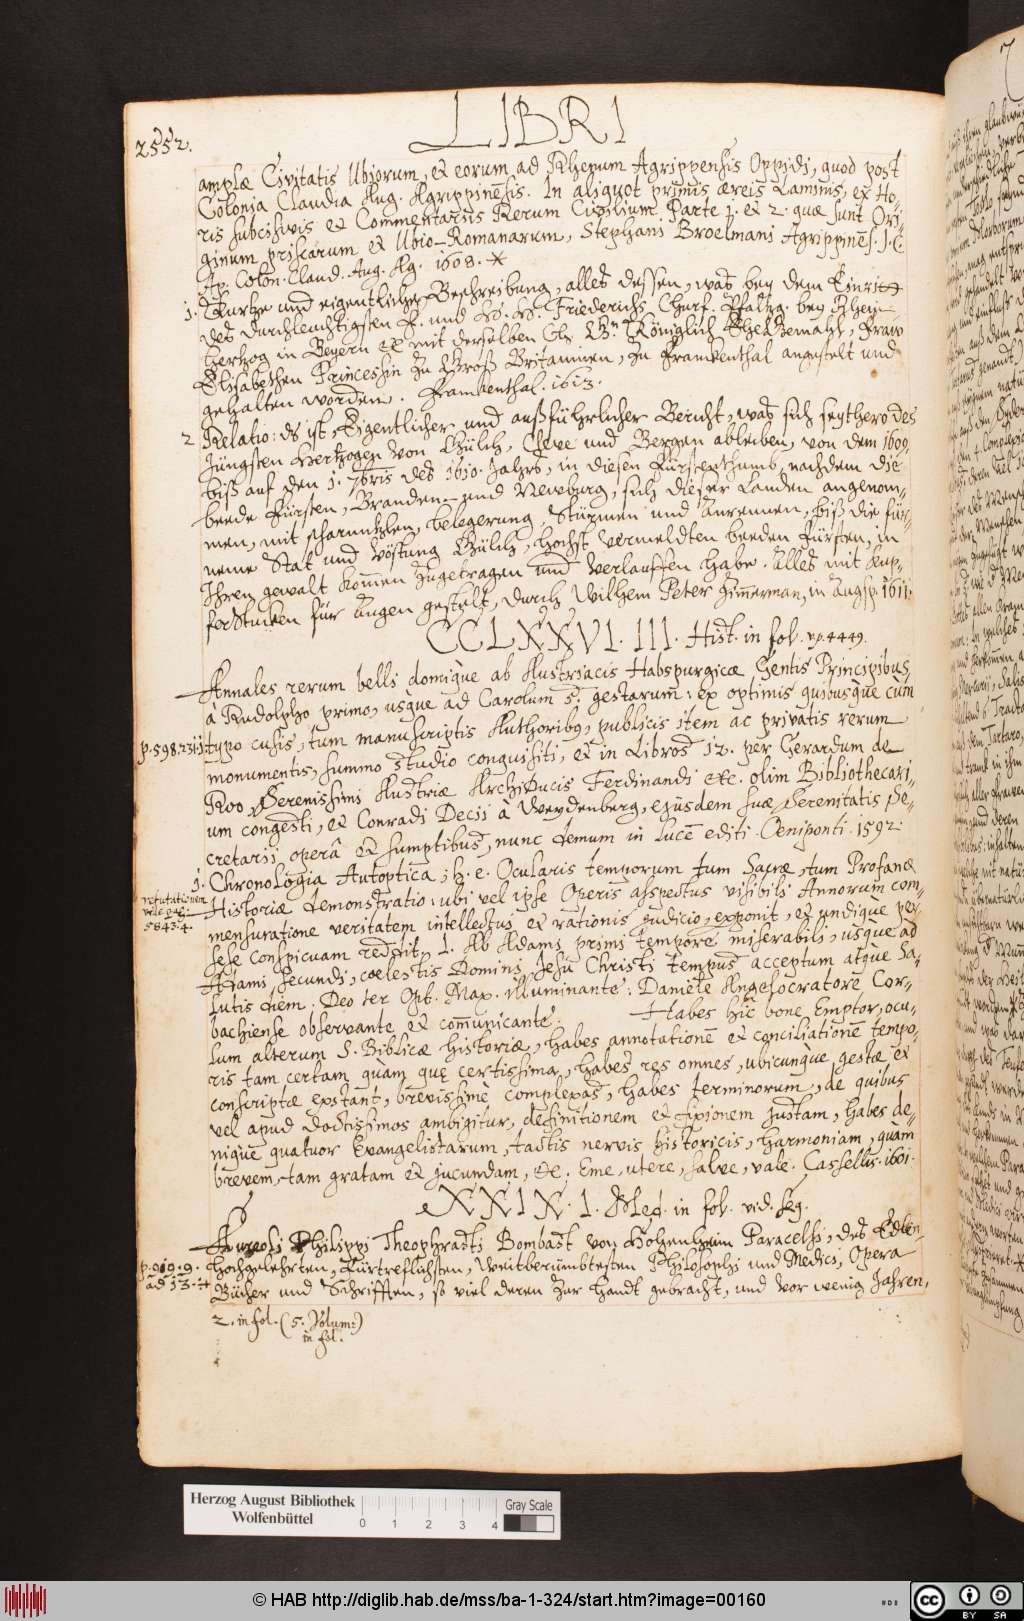 LIBRI
2552.
amplæ Civitatis Ubiorum, et eorum ad Rhenum Agrippensis Oppidi, quod post
Colonia Claudia Aug. Agrippinensis. In aliquot primis æreis Laminis, ex Ho-
ris subcisivis et Commentariis Rerum Civilium. Parte 1. et 2. quæ sunt Ori-
ginum priscarum et Ubio-Romanarum, Stephani Broelmani Agrippinēs. I. C
Ap. Colon. Claud. Aug. Ag. 1608. *
1. Kurtze und eigentliche Beschreibung, alles dessen, was bey dem Einritt
des durchleuchtigsten F. und H. H. Friederichs Churf. Pfaltzg. bey Rhein
Hertzog in Beyern etc mit derselben Königlich Ehe Gemahl, Fraw
Elisabethen Princessin zu Groß Britannien, zu Franckenthal angestelt und
gehalten worden. Franckenthal. 1613.
2 Relatio: ds ist, Eigentlicher und außführlicher Bericht, was sich seythero des
Jüngsten Hertzogen von Gülch, Cleve und Bergen ableiben, von dem 1609.
biß auf den 1. 7bris des 1610. Jahrs, in diesen Fürstenthumb, nachdem die
beede Fürsten, Branden- und Newburg, sich dieser Landen angenom-
men, mit scharmützlen, belegerung, Stürmen und Anrennen, biß die für-
neme Stat und Vöstung Gülch, hochst vermeldten beeden Fürsten, in
Ihren gewalt kom̄en zugetragen und verlauffen habe. Alles mit Kup-
ferstucken für Augen gestelt, durch Wilhem Peter Zim̄erman, in Augsp. 1611.
CCLXXVI. III. Hist. in fol. vp. 4449.
Annales rerum belli domique ab Austriacis Habspurgicæ Gentis Principibus,
à Rudolpho primo, usque ad Carolum 5. gestarum: ex optimis quibusque cùm
p. 598. 7313 typo cusis, tum manuscriptis Authoribꝫ, publicis item ac privatis rerum
monumentis, summo studio conquisiti, et in Libros 12. per Gerardum de
Roo, Serenissimi Austriæ Archiducis Ferdinandi etc. olim Bibliothecari-
um congesti, et Conradi Decii à Weydenberg, ejusdem suæ Serenitatis Se-
cretarii, operâ et sumptibus, nunc demum in lucē editi. Oeniponti. 1592.
1. Chronologia Autoptica; h. e. Ocularis temporum tum Sacræ, tum Profanæ
refutationem
vide pag.
5843. 4.
Historiæ demonstratio: ubi vel ipse Operis aspectus visibili Annorum com-
mensuratione veritatem intellectus et rationis judicio, exponit, et undique per
sese conspicuam reddit, 1. Ab Adami primi tempore miserabili, usque ad
Adami, secundi, cœlestis Domini Jesu Christi tempus acceptum atque Sa-
lutis diem. Deo ter Opt. Max. illuminante: Daniele Angelocratore Cor-
bachiense observante et com̄unicante. Habes hîc bone Emptor, ocu-
lum alterum S. Biblicæ historiæ, habes annotationē et conciliationē tempo-
ris tam certam quàm quę certissima, habes res omnes, ubicunque gestæ et
conscriptæ exstant, brevissimè complexas, habes terminorum, de quibus
vel apud doctissimos ambigitur, definitionem et fixionem justam, habes de-
nique quatuor Evangelistarum, tactis nervis historicis, harmoniam, quàm
brevem, tam gratam et jucundam, etc. Eme, utere, salve, vale. Cassellis. 1601.
XXIX. 1. Med. in fol. vid. seq.
Aureoli Philippi Theophrasti Bombast von Hohenheim Paracelsi, des Edlen
Hochgelehrten, Fürtreflichsten, Weitberümbtesten Philosophi und Medici, Opera
Bücher und Schrifften, so viel deren zur Handt gebracht, und vor wenig Jahren,
2. in fol. (5. Volum:)
in fol.
Herzog August Bibliothek
Wolfenbüttel
0 1 2 3 4
Gray Scale
© HAB http://diglib.hab.de/mss/ba-1-324/start.htm?image=00160
cc BY SA